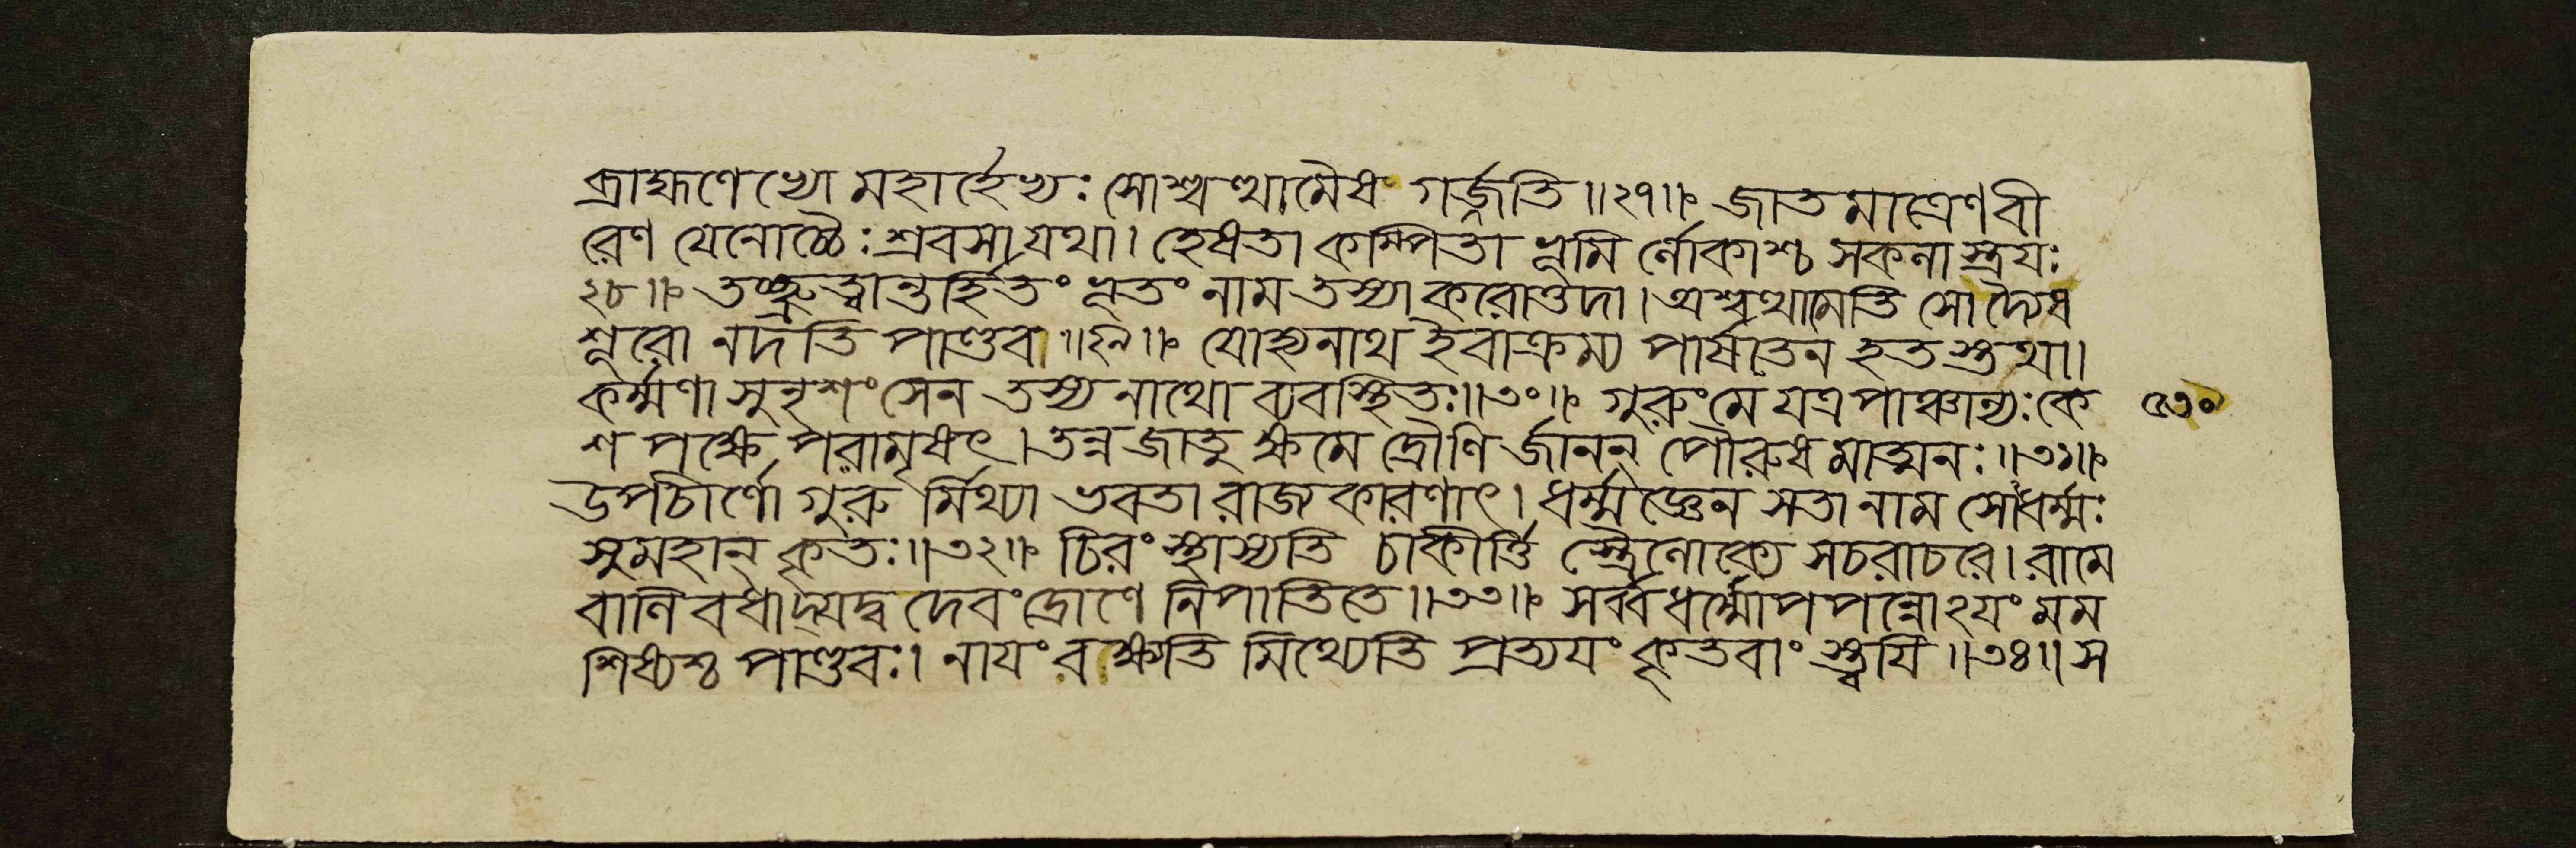 ব্রাহ্মণেখ্যো মহার্হেখ্যঃ সোশ্বত্থামৈষ গর্জ্জতি॥২৭॥ জাতমাত্রেণবী
রেণ যেনোচ্চৈঃশ্রবসাযথা। হেষতা কম্পিতা ভূমি র্লোকাশ্চ সকলাস্ত্রযঃ
২৮॥ তচ্ছ্রুত্বান্তর্হিতং ভূতং নাম তস্যাকরোত্তদা। অশ্বত্থামেতি সোদ্যৈষ
শূরো নদতি পাণ্ডব॥২৯॥ যোহ্যনাথ ইবাক্রম্য পার্ষতেন হতস্তথা।
কর্ম্মণা সুনৃশংসেন তস্য নাথো ব্যবস্থিতঃ॥৩০॥ গুরুং মে যত্র পাঞ্চাল্যঃ কে
শ পক্ষে পরামৃষৎ। তন্ন জাতু ক্ষমে দ্রৌণি র্জানন্ পৌরুষমাত্মনঃ॥৩১॥
উপচীর্ণো গুরু র্মিথ্যা ভবতা রাজকারণাৎ। ধর্ম্মজ্ঞেন সতা নাম সোধর্ম্মঃ
সুমহান্ কৃতঃ॥৩২॥ চিরং স্থাস্যতি চাকীর্ত্তি স্ত্রৈলোক্যে সচরাচরে। রামে
বালিবধাদ্যদ্বদেবং দ্রোণে নিপাতিতে॥৩৩॥ সর্ব্বধর্ম্মোপপন্নোঽযং মম
শিষ্যশ্চ পাণ্ডবঃ। নাযং বক্ষ্যতি মিথ্যেতি প্রত্যযং কৃতবাং স্ত্বযি॥৩৪॥ স
৫৩০